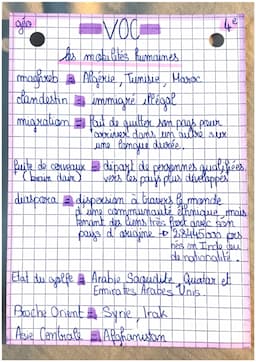 géo
VOC
4e
les mobilités humaines
maghreb = Algérie, Tunisie, Maroc
clandestin = immigré illégal
migration = fait de quitter son pays pour
arriver dans un autre sur
une longue durée.
fuite de cerveaux = départ de personnes qualifiées
(brain drain) vers les pays plus développés
diaspora = dispersion à travers le monde
d'une communauté éthnique mais
tenant des liens très fort avec son
pays d'origine → 28445000 pers
nés en Inde ou
de nationalité.
Etat du golfe = Arabie Saoudite Quatar et
Emirates Arabes Unis
Proche Orient = Syrie, Irak
Asie Centrale = Afghanistan